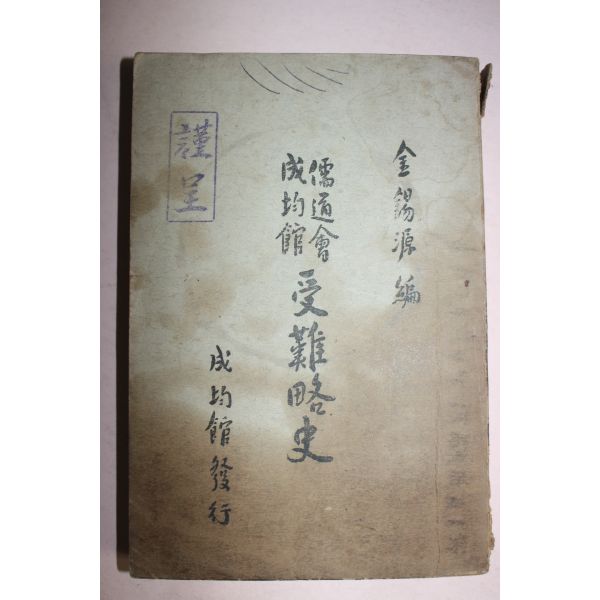 金錫源 編
儒道會
成均館
受難略史
成均館 發行
謹呈